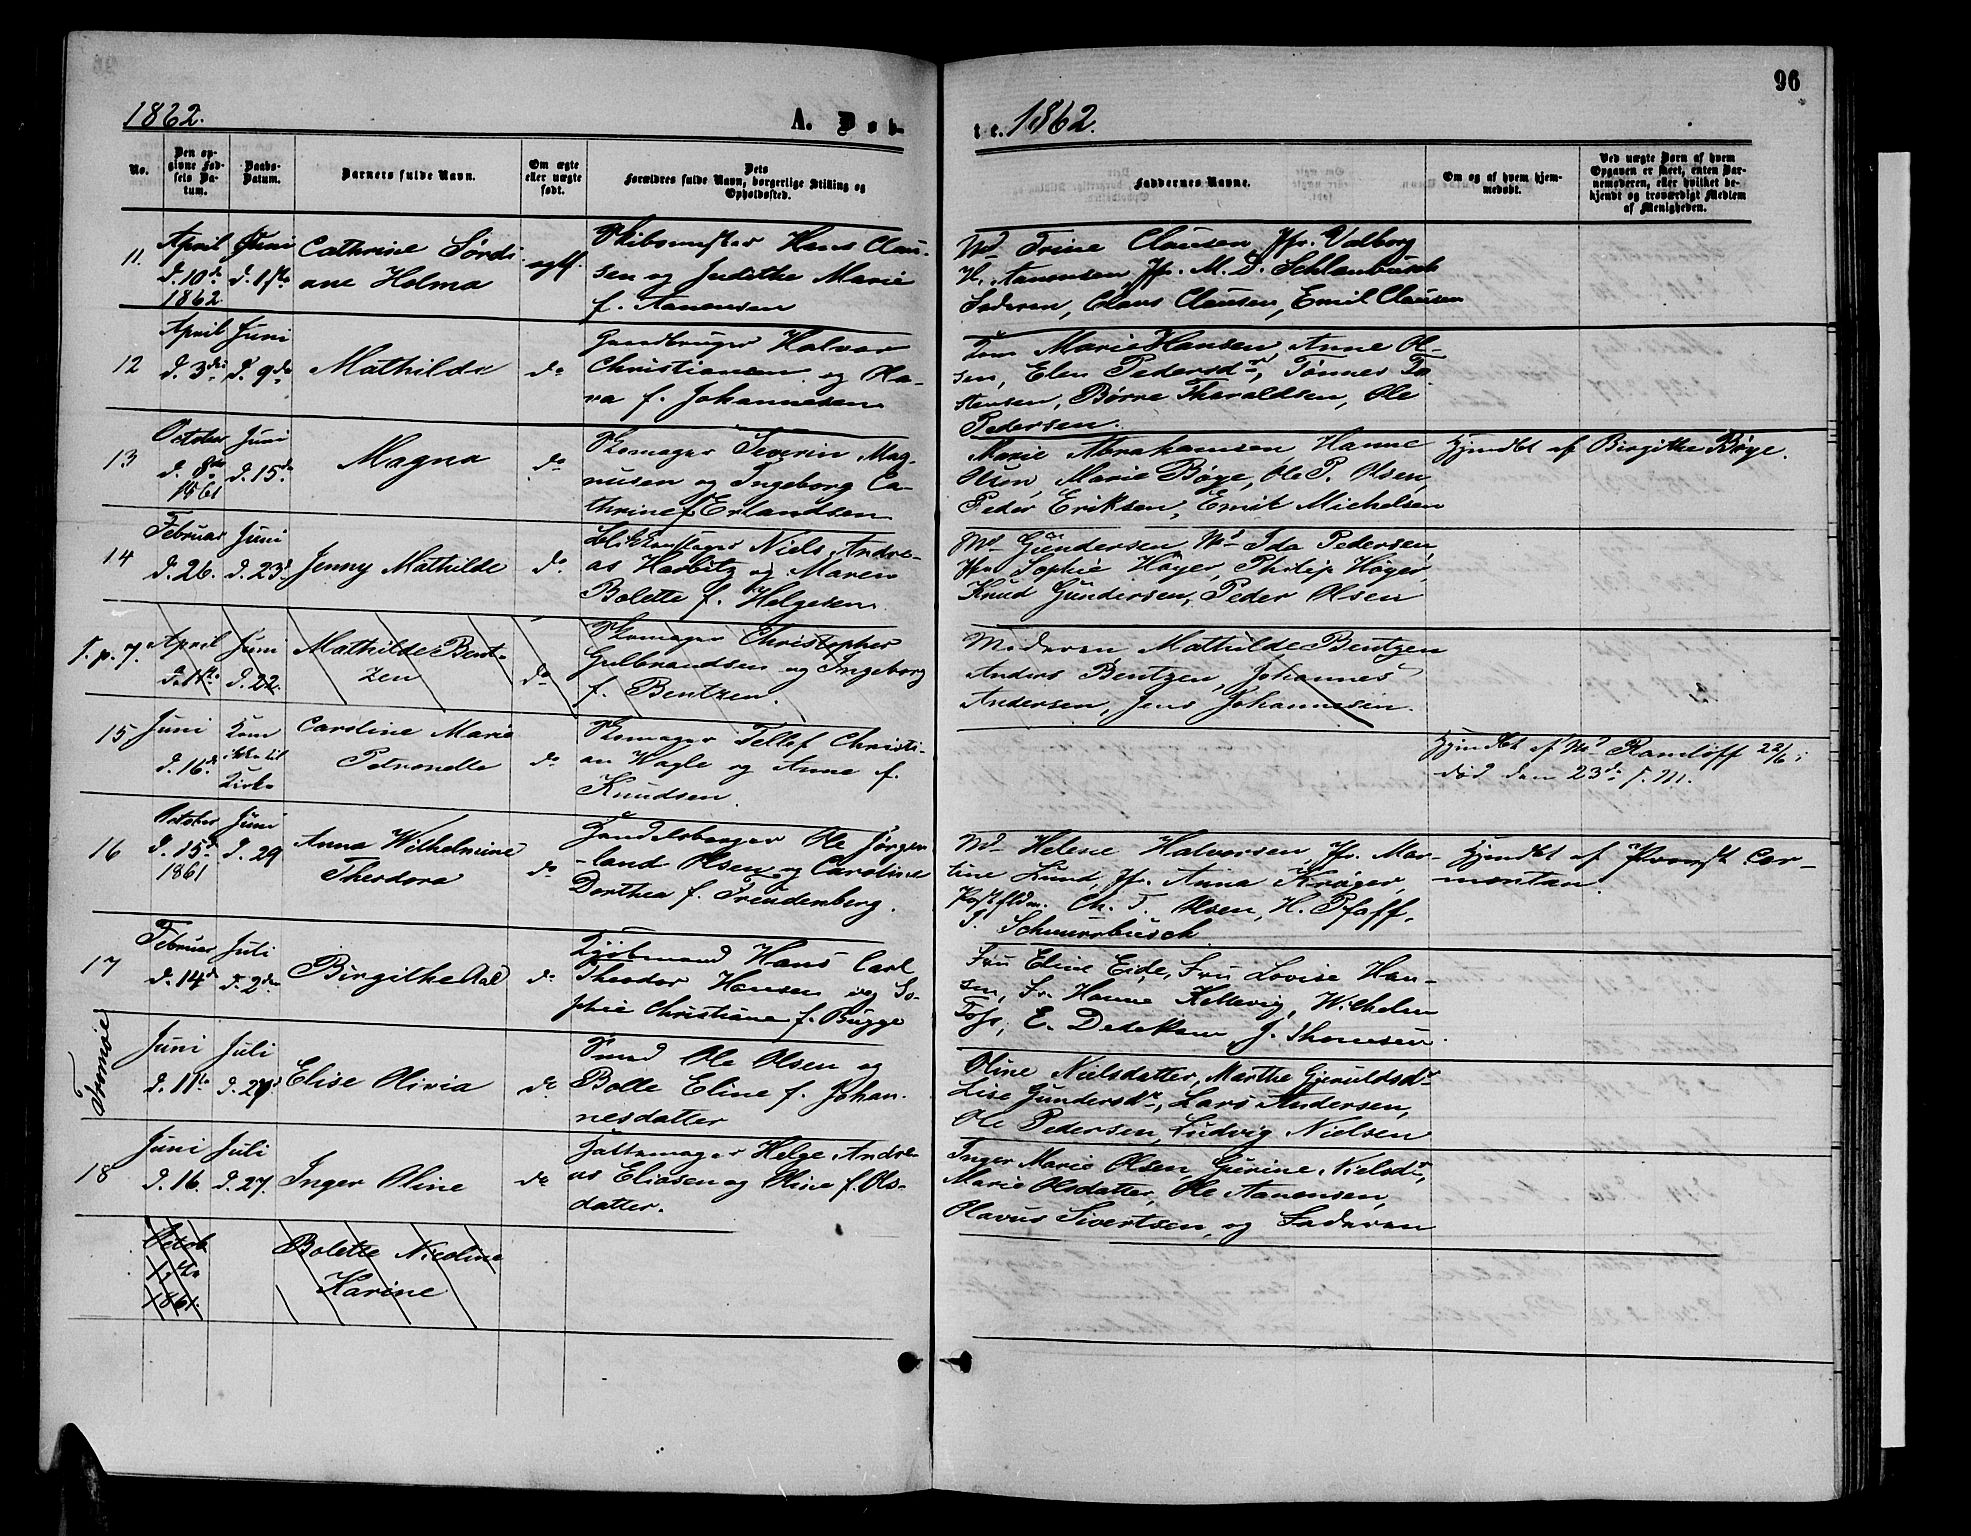 96
1862.
A. Døb-
te. 1862.
No.
Den op-
givne Fød-
sels Da-
tum.
Daabs-
Datum.
Barnets fulde Navn.
Om ægte
eller uægte
født.
Dets
Forældres fulde Navn, borgerlige Stilling og
Opholdssted.
Faddernes Navne.
Om og af hvem hjem-
medøbt.
Ved uægte Børn af hvem
Opgaven er skeet, enten Bar-
nemoderen, eller hvilket be-
kjendt og troværdigt Medlem
af Menigheden.
11.
April
d. 10de
1862
Juni
Cathrine Tørdi
ane Helma
ægtf.
Skibsmester Hans Clau-
sen og Judithe Marie
f. Aanensen
Md Trine Clausen, Jfr. Valborg
H. Aanensen, Jfr. M. D. Schlanbusch
Faderen, Claus Clausen, Emil Clausen
12
April
d. 3die
Juni
d. 9de
Mathilde
do
Gaardbruger Halvor
Christiansen og Ola-
va f. Johannesen
Kone Marie Hansen, Anne Ol-
sen, Elen Pedersdr, Tønnes To
stensen, Børre Tharaldsen, Ole
Pedersen.
13
October
d. 8de
1861
Juni
d. 15de
Magna
do
Skomager Severin Mag-
nusen og Ingeborg Ca-
thrine f. Erlandsen
Marie Abrahamsen, Hanne
Olson, Marie Bøge, Ole P. Olsen,
Peder Eriksen, Emil Michelsen
Hjemdbt af Birgithe Bøye.
14
Februar
d. 26.
Juni
d. 23d
Jenny Mathilde
do
Blikkenslager Niels Andre-
as Harbitz og Maren
Bolette f. Helgesen
Md Gundersen, Md Ida Pedersen,
Jfr Sophie Høyer, Philip Høyer,
Knud Gundersen, Peder Olsen
S. p. 7.
April
d. 11te
Juni
d. 22.
Mathilde Bent-
zen
do
Skomager Christopher
Gulbrandsen og Ingeborg
f. Bentzen.
Moderen Mathilde Bentzen
Anders Bentzen, Johannes
Andersen, Jens Johannesen.
15
Juni
d. 16de
Kom
ikke til
Kirke
Caroline Marie
Petronelle
do
Skomager Tellef Christi-
an Vagle og Anne f.
Knudsen.
Hjemdbt af Md Ramløff 22/6;
død den 23de s. M.
16
October
d. 15de
1861
Juni
d. 29
Anna Wilhelmine
Theodora
do
Handelsborger Ole Jørgen
land Olsen og Caroline
Dorthea f. Freudenberg.
Md Helene Halvorsen, Jfr. Mar-
tine Lund, Jfr. Anna Krøger,
Postfldm. Ch. T. Olsen, H. Pfaff,
P. Schnurrbusch
Hjemdbt af Provst Cor-
montan.
17
Februar
d. 14de
Juli
d. 2den
Birgithe Aal
do
Kjøbmand Hans Carl
Theodor Hansen og So-
phie Christiane f. Bugge
Fru Eline Eide, Fru Lovise Han-
sen, Fr. Hanne Kallevig, Wilhelm
Foss, E. Dedekam, J. Thomsen.
Tromøe
Juni
d. 11te
Juli
Elise Olivia
do
Smed Ole Olsen og
Bolle Eline f. Johan-
nesdatter
Oline Nielsdatter, Marthe Gjeruldsdr
Lise Gundersdr, Lars Andersen,
Ole Pedersen, Ludvig Nielsen
18
Juni
d. 16.
Juli
d. 27.
Inger Oline
do
Hattemager Helge Andre-
as Eliasen og Oline f. Ols-
datter.
Inger Marie Olsen, Gurine Nielsdr,
Marie Olsdatter, Ole Aanensen,
Olavus Sivertsen, og Faderen
Octob
17de
1861.
Bolette Nicoline
Karine